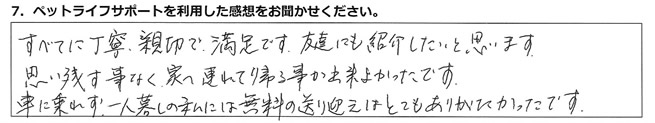 7．ペットライフサポートを利用した感想をお聞かせください。
すべてに丁寧、親切で、満足です。友達にも紹介したいと思います
思い残す事なく、家へ連れて帰る事が出来よかったです。
車に乗れず、一人暮しの私には無料の送り迎えはとてもありがたかったです。